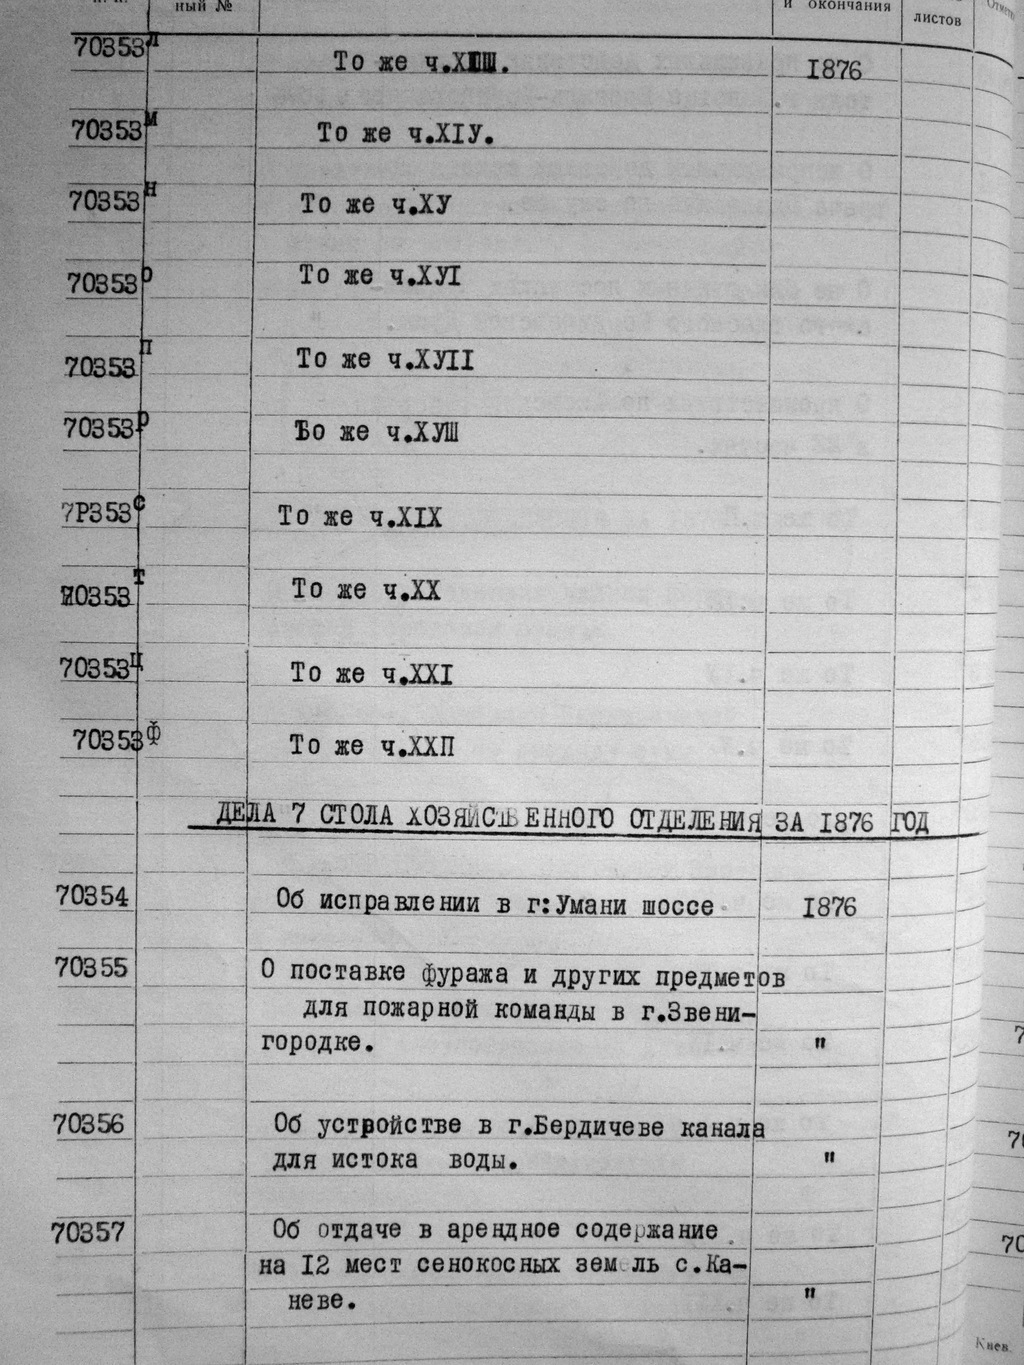 ный №
и окончания
листов
70353л То же ч.ХШ. 1876
70353м То же ч.ХІУ.
70353н То же ч.ХУ
70353о То же ч.ХУІ
70353п То же ч.ХУІІ
70353р То же ч.ХУШ
7Р353с То же ч.ХІХ
70353т То же ч.ХХ
70353ц То же ч.ХХІ
70353ф То же ч.ХХП
ДЕЛА 7 СТОЛА ХОЗЯЙСТВЕННОГО ОТДЕЛЕНИЯ ЗА 1876 ГОД
70354 Об исправлении в г:Умани шоссе 1876
70355 О поставке фуража и других предметов
для пожарной команды в г.Звени-
городке. "
70356 Об устройстве в г.Бердичеве канала
для истока воды. "
70357 Об отдаче в арендное содержание
на 12 мест сенокосных земель с.Ка-
неве. "
Киев.